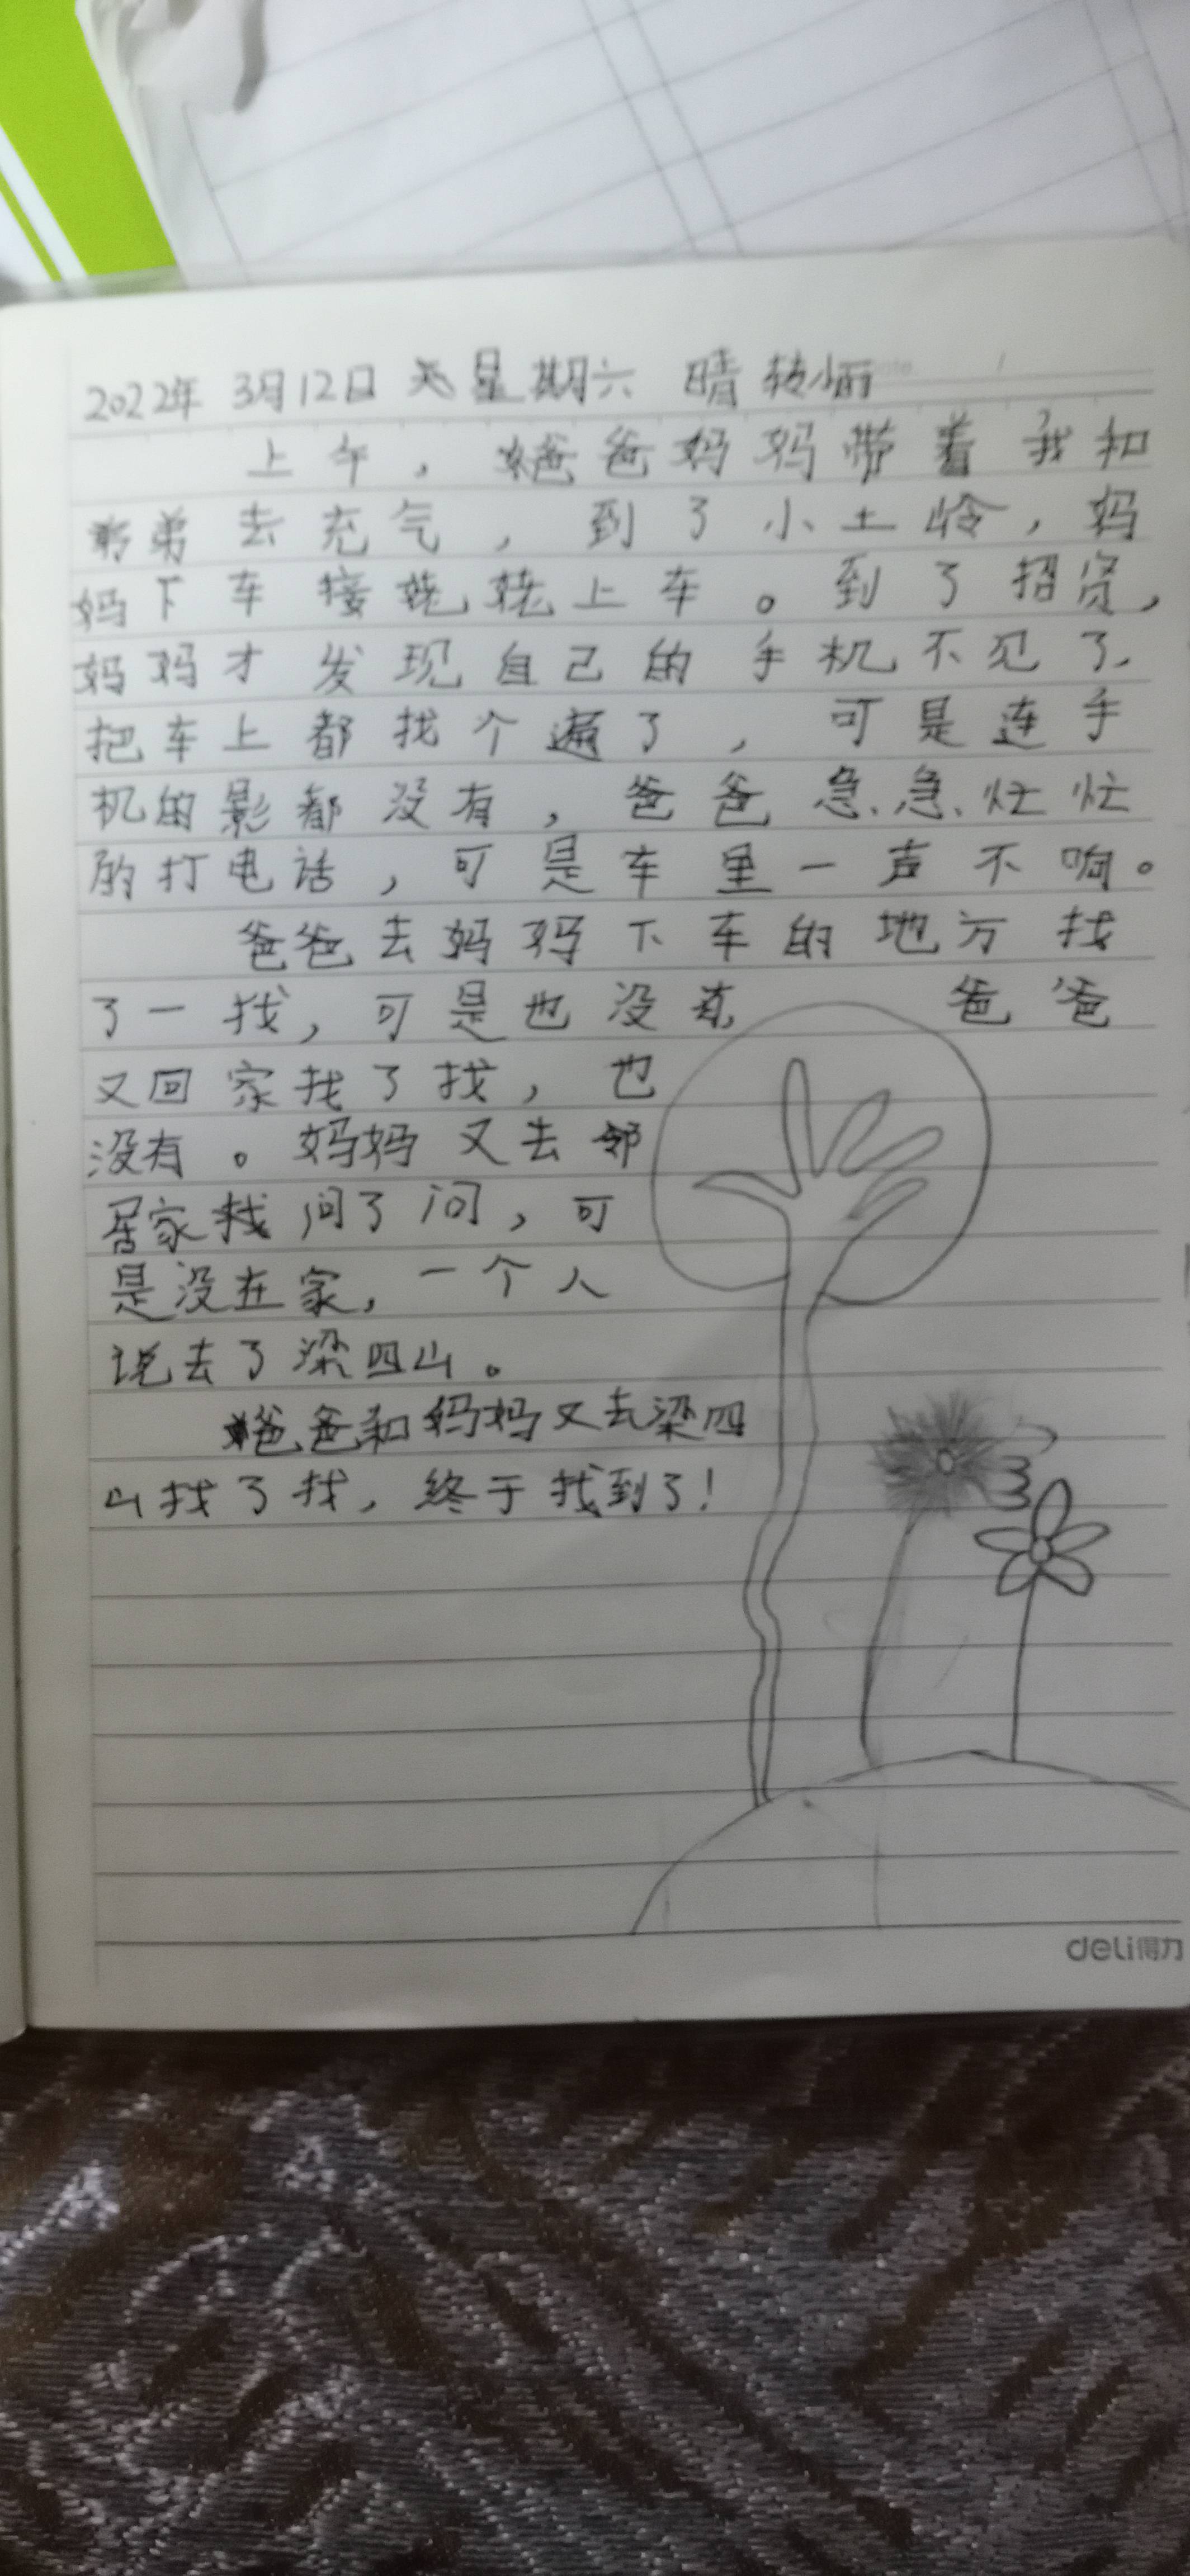 2022年 3月12日 星期六 晴转小雨
上午，爸爸妈妈带着我和
弟弟去充气，到了小土岭，妈
妈下车接姥姥上车。到了招贤，
妈妈才发现自己的手机不见了，
把车上都找个遍了，可是连手
机的影都没有，爸爸急急忙忙
的打电话，可是车里一声不响。
爸爸去妈妈下车的地方找
了一找，可是也没有 爸爸
又回家找了找，也
没有。妈妈又去邻
居家找问了问，可
是没在家，一个人
说去了梁四山。
爸爸和妈妈又去梁四
山找了找，终于找到了！
deli得力